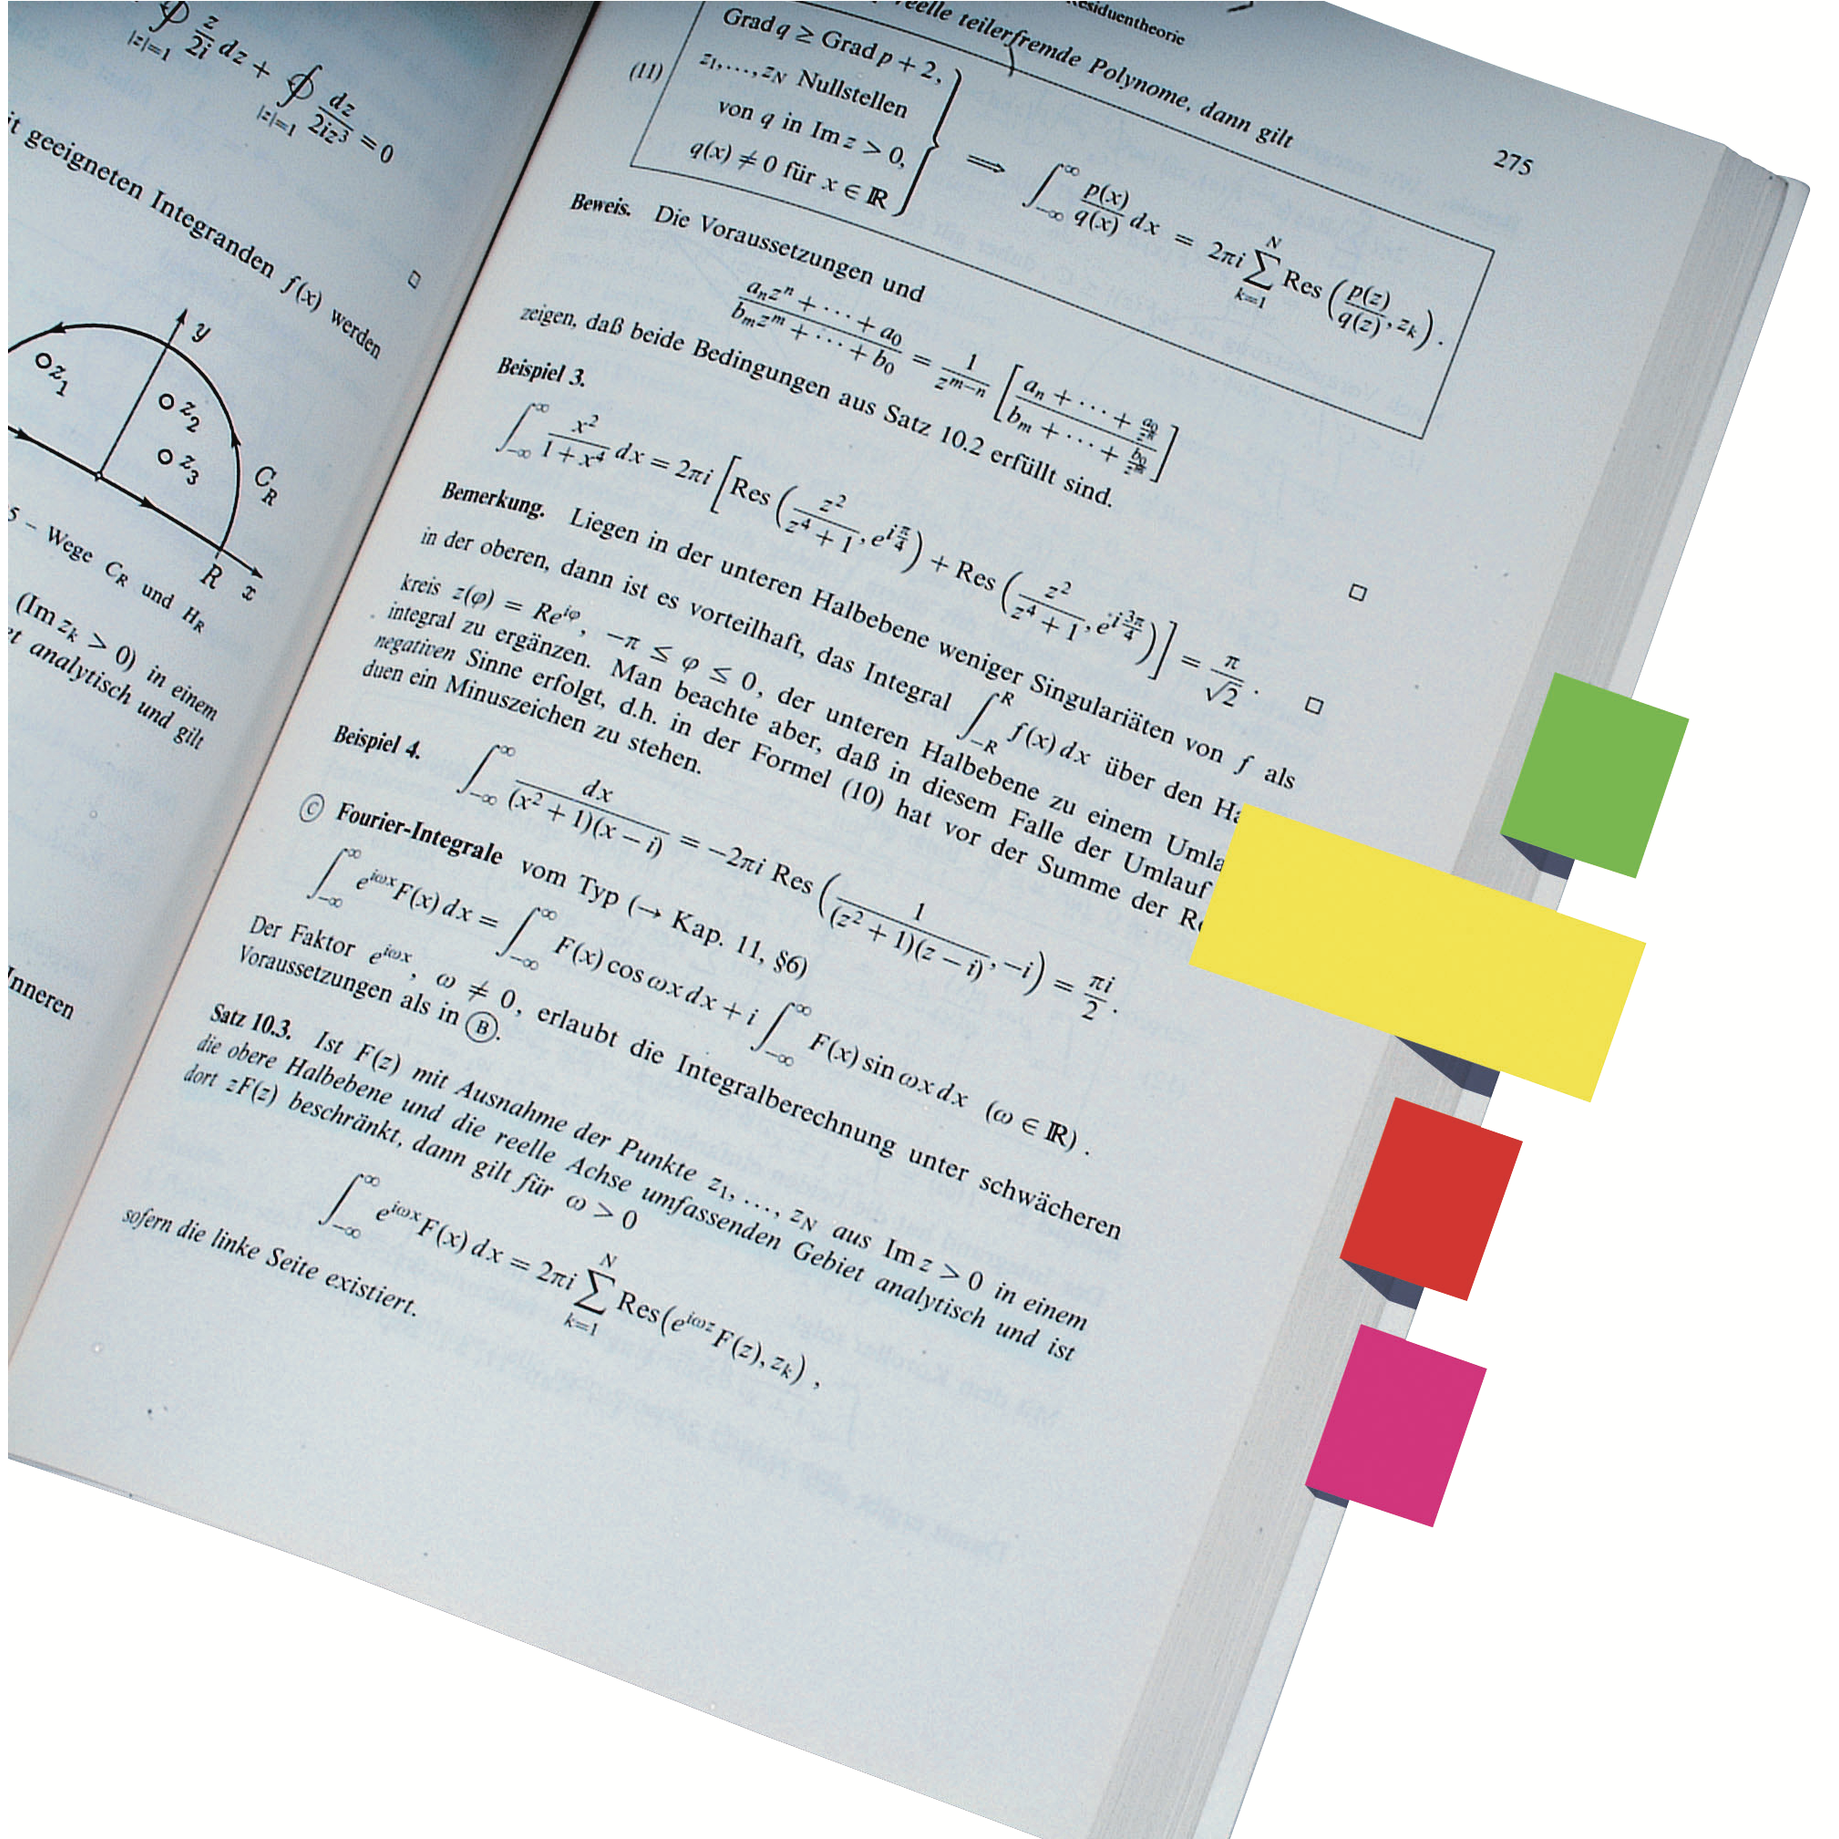 ∮_{|z|=1} z/2i dz + ∮_{|z|=1} dz/2iz³ = 0
□
geeigneten Integranden f(x) werden
y
z₁
z₂
z₃
C_R
R x
5 – Wege C_R und H_R
(Im z_k > 0) in einem
analytisch und gilt
Inneren
Residuentheorie 275
reelle teilerfremde Polynome, dann gilt
(11) Grad q ≥ Grad p + 2,
z₁,…,z_N Nullstellen
von q in Im z > 0,
q(x) ≠ 0 für x ∈ ℝ } ⟹ ∫_{-∞}^{∞} p(x)/q(x) dx = 2πi ∑_{k=1}^{N} Res (p(z)/q(z), z_k).
Beweis. Die Voraussetzungen und
(a_n z^n + ⋯ + a₀)/(b_m z^m + ⋯ + b₀) = 1/z^{m−n} [(a_n + ⋯ + a₀/z^n)/(b_m + ⋯ + b₀/z^m)]
zeigen, daß beide Bedingungen aus Satz 10.2 erfüllt sind. □
Beispiel 3.
∫_{-∞}^{∞} x²/(1+x⁴) dx = 2πi [Res (z²/(z⁴+1), e^{iπ/4}) + Res (z²/(z⁴+1), e^{i3π/4})] = π/√2. □
Bemerkung. Liegen in der unteren Halbebene weniger Singulariäten von f als
in der oberen, dann ist es vorteilhaft, das Integral ∫_{-R}^{R} f(x) dx über den
kreis z(φ) = Re^{iφ}, −π ≤ φ ≤ 0, der unteren Halbebene zu einem
integral zu ergänzen. Man beachte aber, daß in diesem Falle der Umlauf
negativen Sinne erfolgt, d.h. in der Formel (10) hat vor der Summe der
duen ein Minuszeichen zu stehen.
Beispiel 4. ∫_{-∞}^{∞} dx/((x²+1)(x−i)) = −2πi Res (1/((z²+1)(z−i)), −i) = πi/2.
Ⓒ Fourier-Integrale vom Typ (→ Kap. 11, §6)
∫_{-∞}^{∞} e^{iωx} F(x) dx = ∫_{-∞}^{∞} F(x) cos ωx dx + i ∫_{-∞}^{∞} F(x) sin ωx dx (ω ∈ ℝ).
Der Faktor e^{iωx}, ω ≠ 0, erlaubt die Integralberechnung unter schwächeren
Voraussetzungen als in Ⓑ.
Satz 10.3. Ist F(z) mit Ausnahme der Punkte z₁, …, z_N aus Im z > 0 in einem
die obere Halbebene und die reelle Achse umfassenden Gebiet analytisch und ist
dort zF(z) beschränkt, dann gilt für ω > 0
∫_{-∞}^{∞} e^{iωx} F(x) dx = 2πi ∑_{k=1}^{N} Res(e^{iωz} F(z), z_k),
sofern die linke Seite existiert.